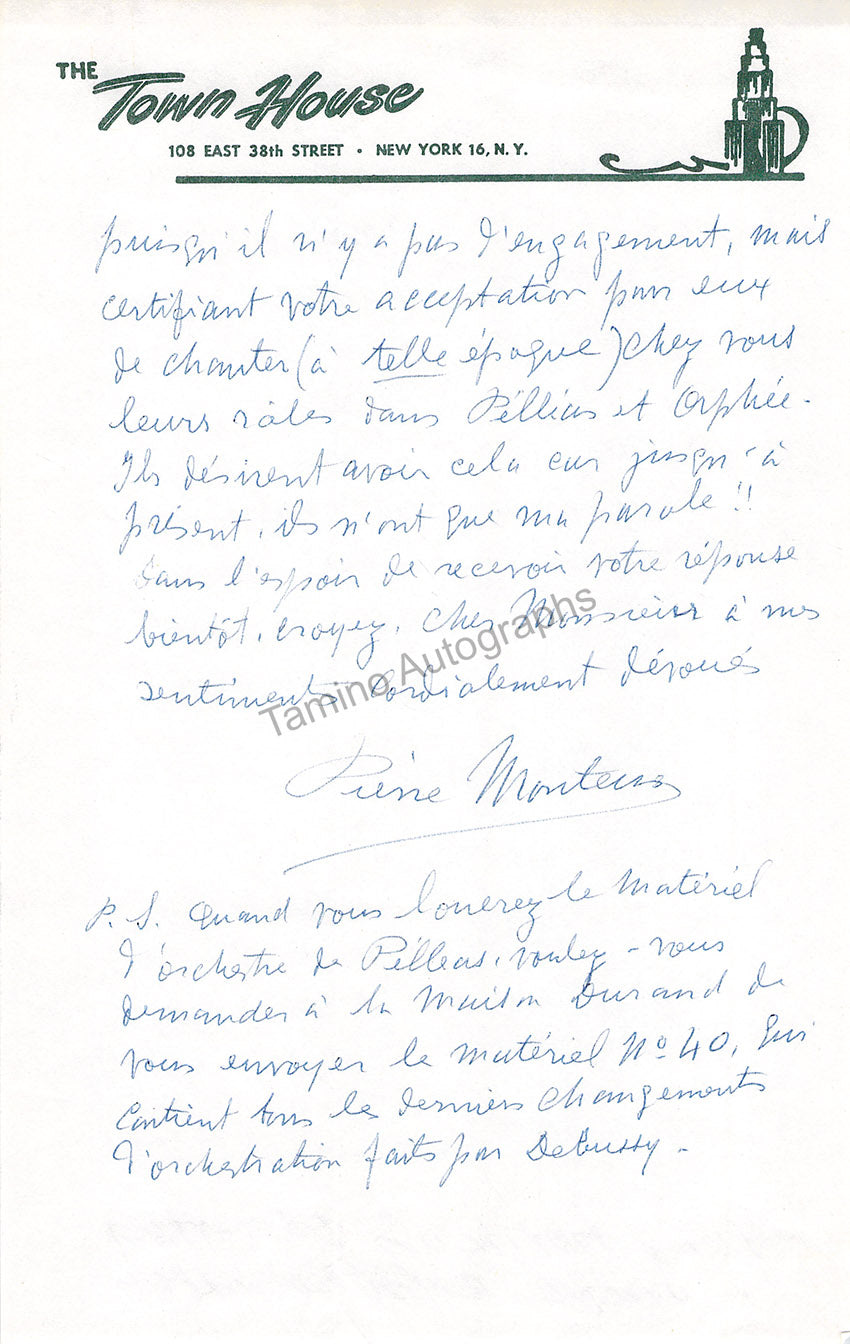 THE Town House
108 EAST 38th STREET • NEW YORK 16, N. Y.
puisqu'il n'y a pas d'engagement, mais
certifiant votre acceptation pour eux
de chanter (à telle époque) chez vous
leurs rôles dans Pélléas et Orphée.
Ils désirent avoir cela car jusqu'à
présent, ils n'ont que ma parole !!
Dans l'espoir de recevoir votre réponse
bientôt, croyez, cher Monsieur à mes
sentiments cordialement dévoués
Tamino Autographs
Pierre Monteux
P. S. Quand vous louerez le matériel
d'orchestre de Pélleas, voulez-vous
demander à la Maison Durand de
vous envoyer le matériel No 40, qui
contient tous les derniers changements
d'orchestration faits par Debussy -